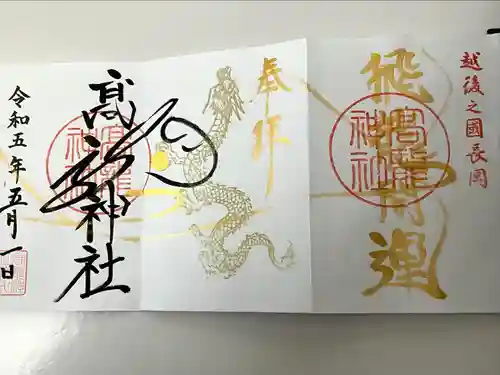 越後之國長岡
飛龍開運
高龍神社
奉拝
髙龍神社
高龍神社
令和五年五月一日